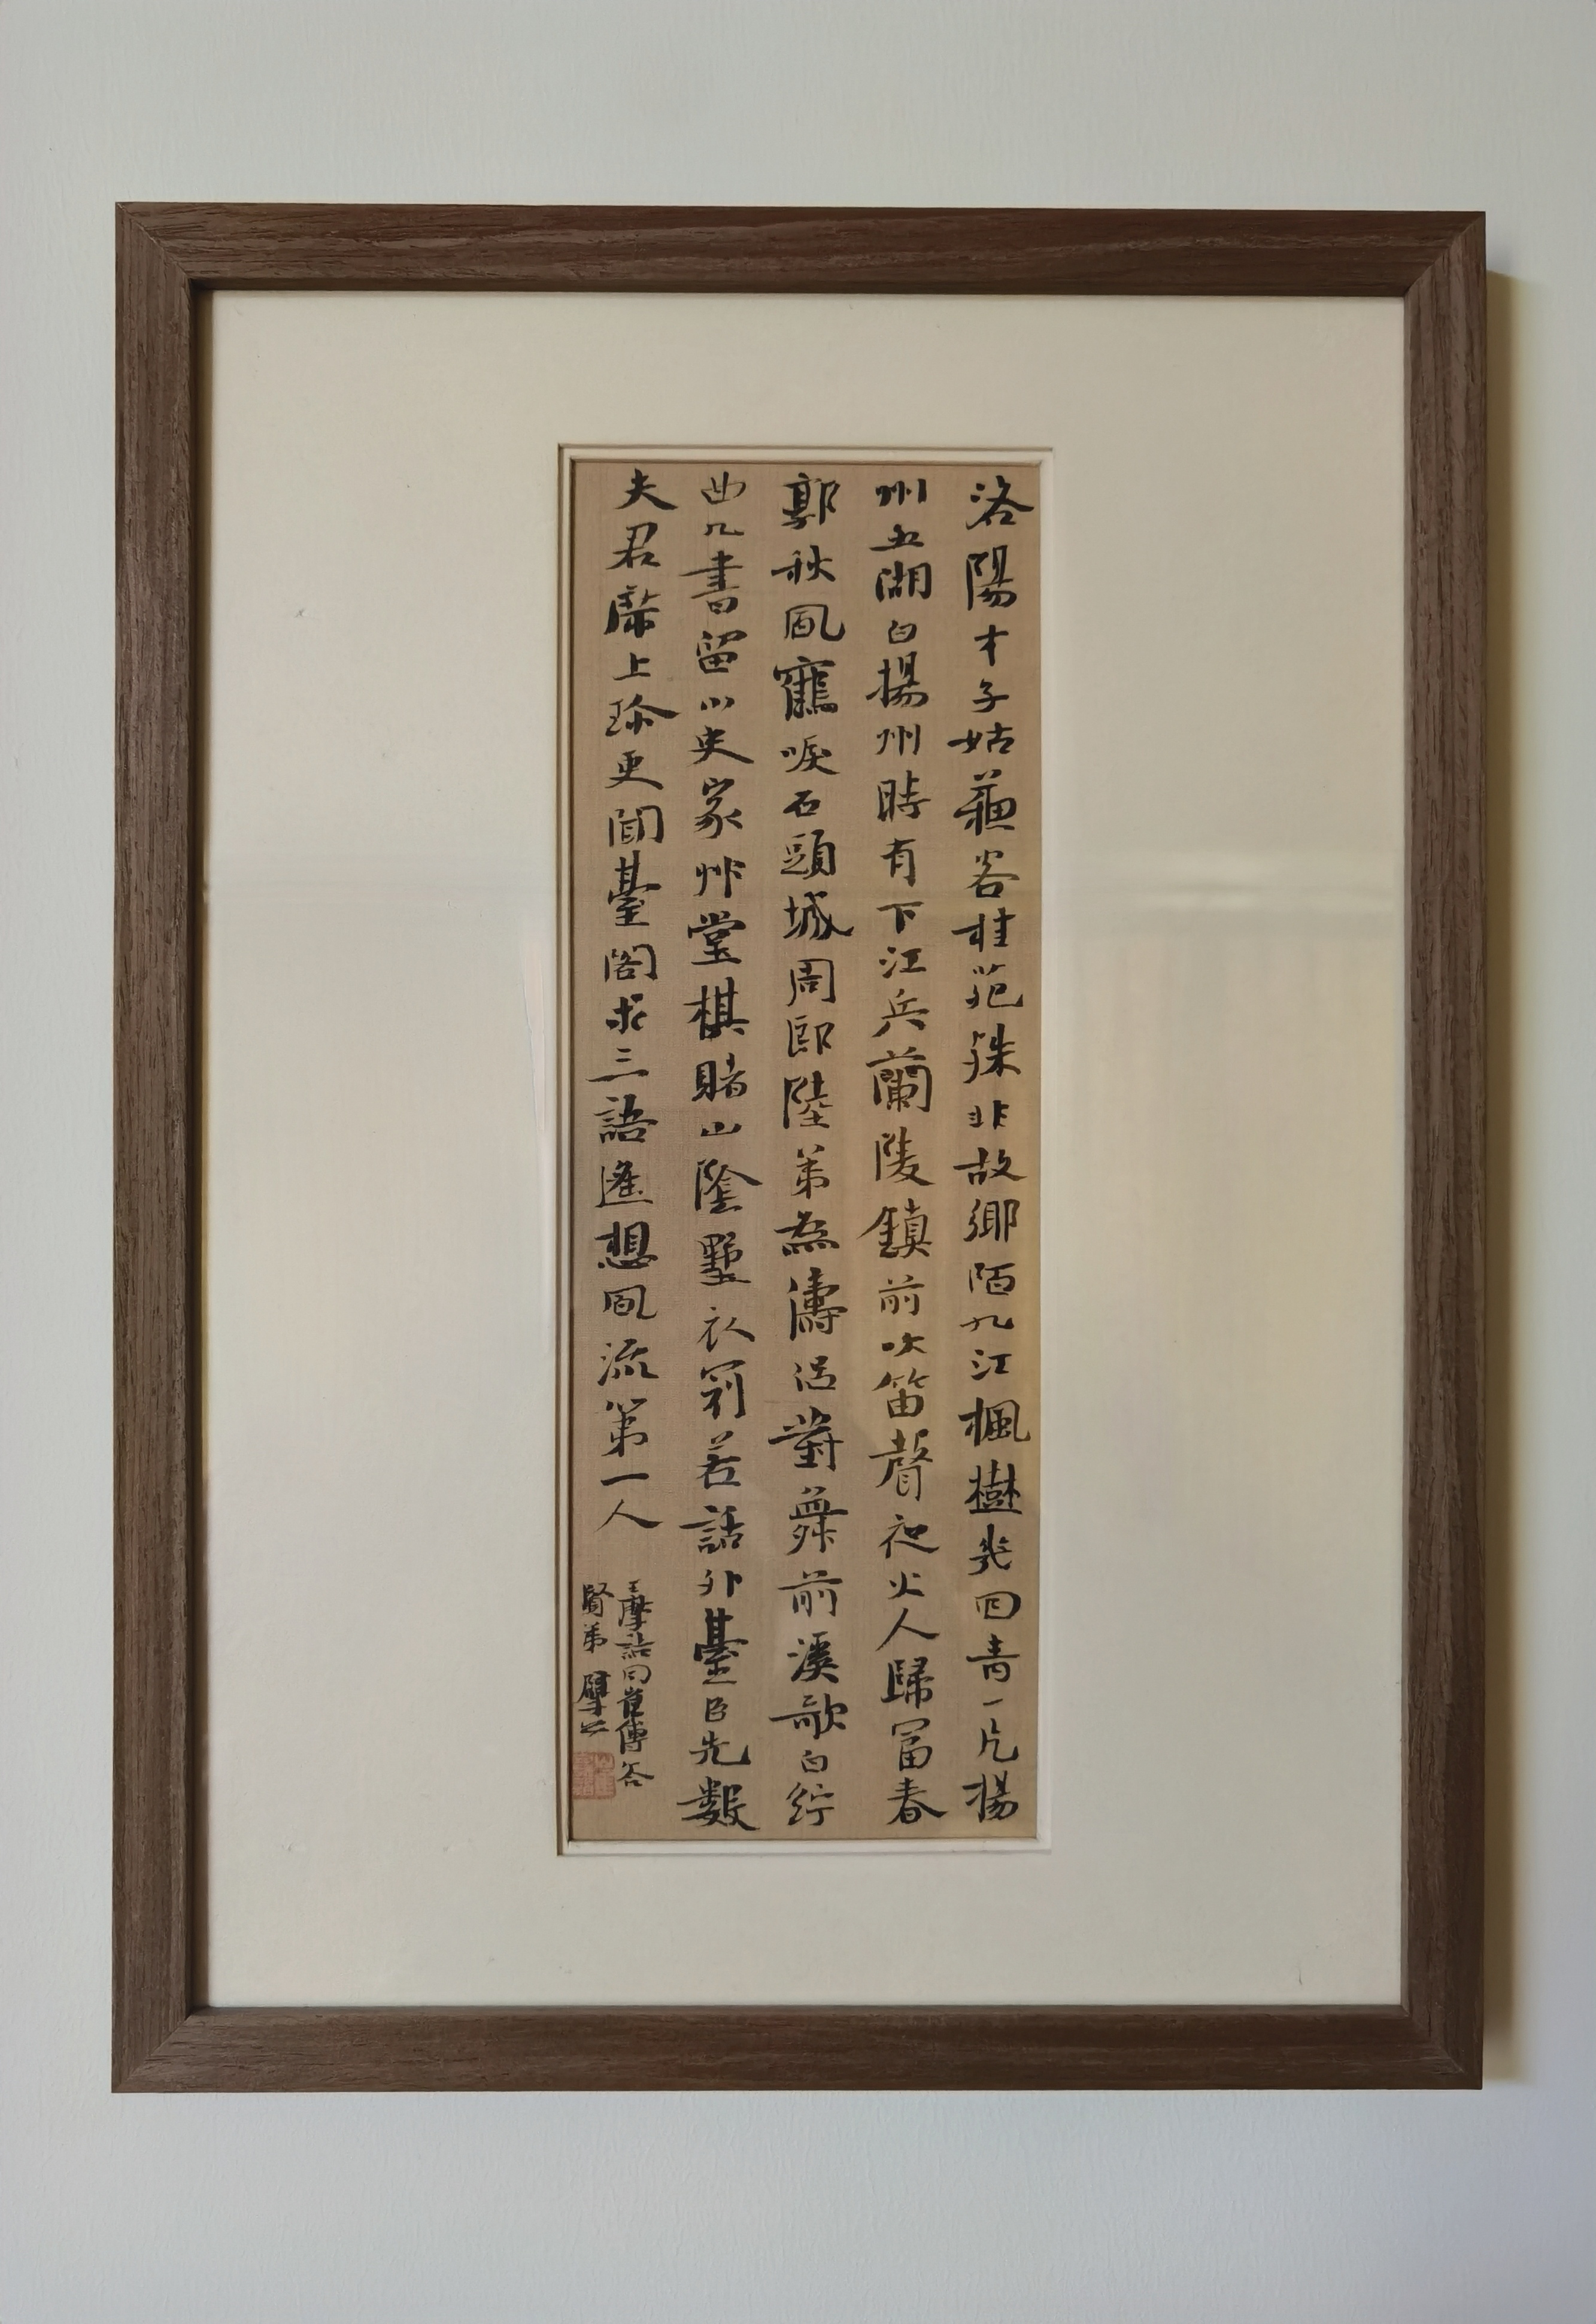 洛陽才子姑蘇客桂苑殊非故鄉陌九江楓樹幾回青一片揚
州五湖白揚州時有下江兵蘭陵鎮前吹笛聲夜火人歸富春
郭秋風鶴唳石頭城周郎陸弟為儔侶對舞前溪歌白紵
曲几書留小史家艸堂棋賭山陰墅衣冠若話外臺臣先數
夫君席上珍更聞臺閣求三語遙想風流第一人
王摩詰同崔傅答
賢弟